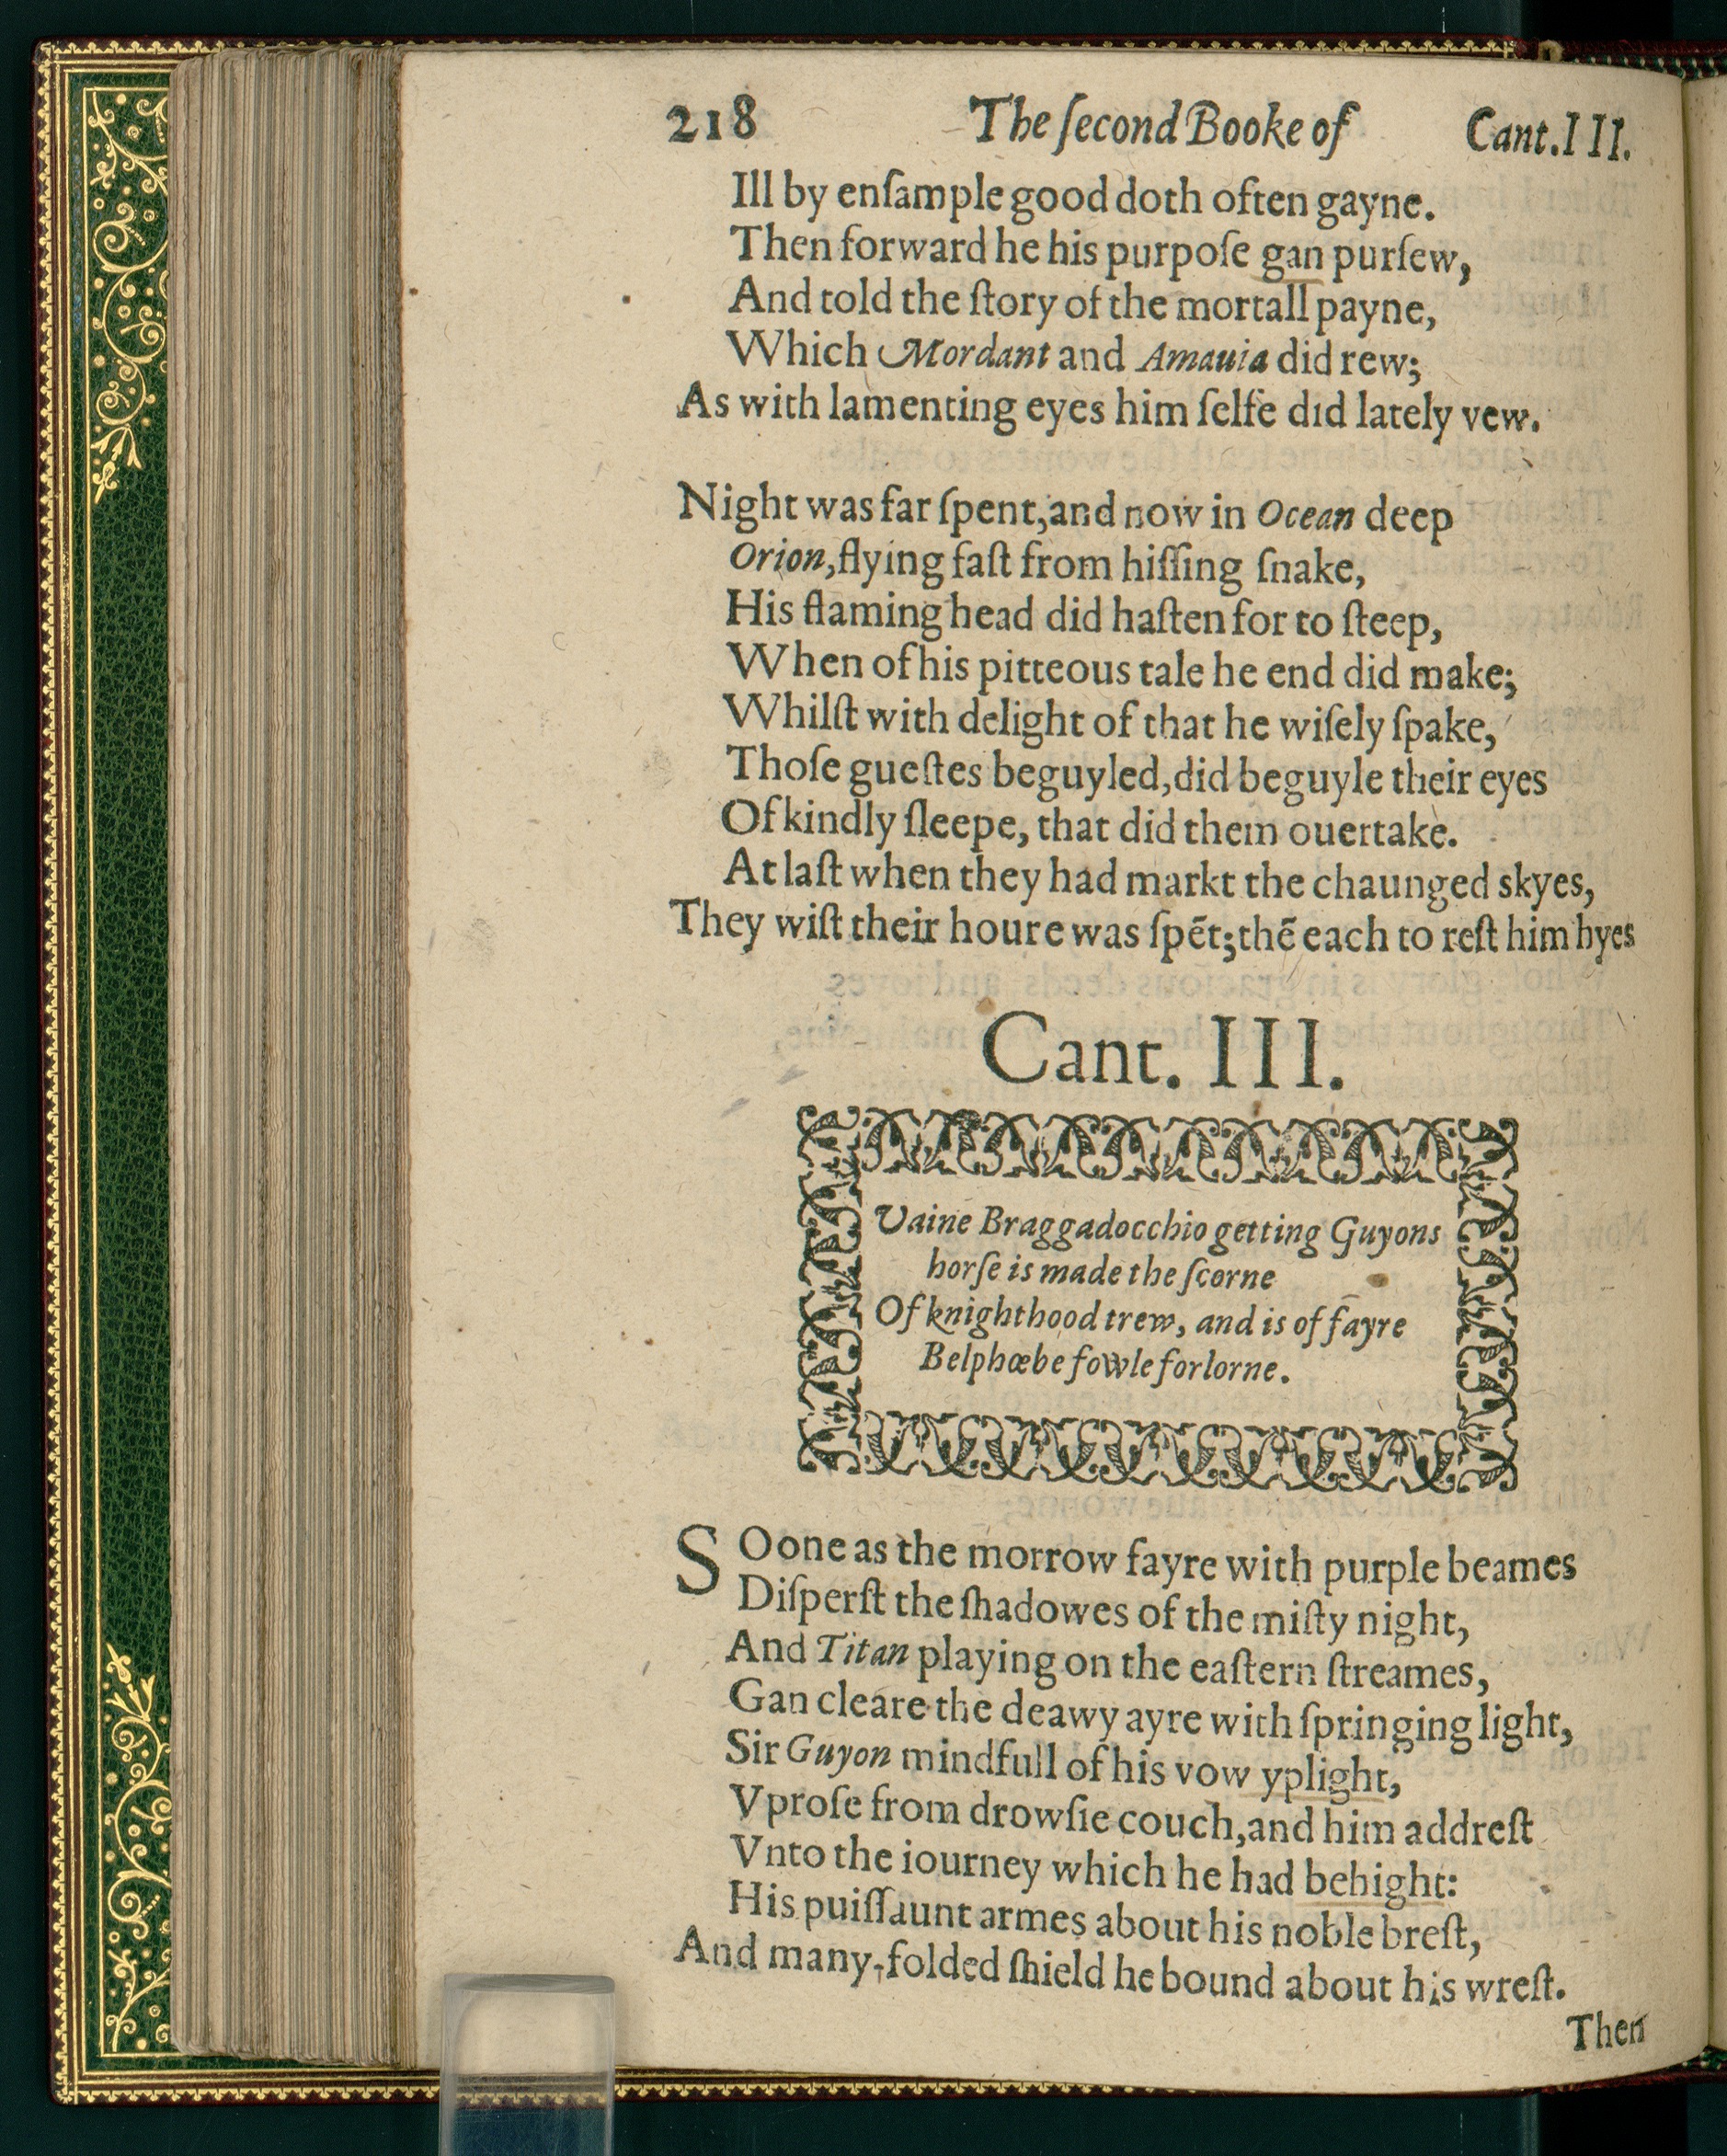 218 The ſecond Booke of Cant.III.
Ill by enſample good doth often gayne.
Then forward he his purpoſe gan purſew,
And told the ſtory of the mortall payne,
Which Mordant and Amauia did rew;
As with lamenting eyes him ſelfe did lately vew.
Night was far ſpent, and now in Ocean deep
Orion, flying faſt from hiſſing ſnake,
His flaming head did haſten for to ſteep,
When of his pitteous tale he end did make;
Whilſt with delight of that he wiſely ſpake,
Thoſe gueſtes beguyled, did beguyle their eyes
Of kindly ſleepe, that did them ouertake.
At laſt when they had markt the chaunged skyes,
They wiſt their houre was ſpēt; thē each to reſt him hyes
Cant. III.
Vaine Braggadocchio getting Guyons
horſe is made the ſcorne
Of knighthood trew, and is of fayre
Belphœbe fowle forlorne.
SOone as the morrow fayre with purple beames
Diſperſt the ſhadowes of the miſty night,
And Titan playing on the eaſtern ſtreames,
Gan cleare the deawy ayre with ſpringing light,
Sir Guyon mindfull of his vow yplight,
Vproſe from drowſie couch, and him addreſt
Vnto the iourney which he had behight:
His puiſſaunt armes about his noble breſt,
And many-folded ſhield he bound about his wreſt.
Then